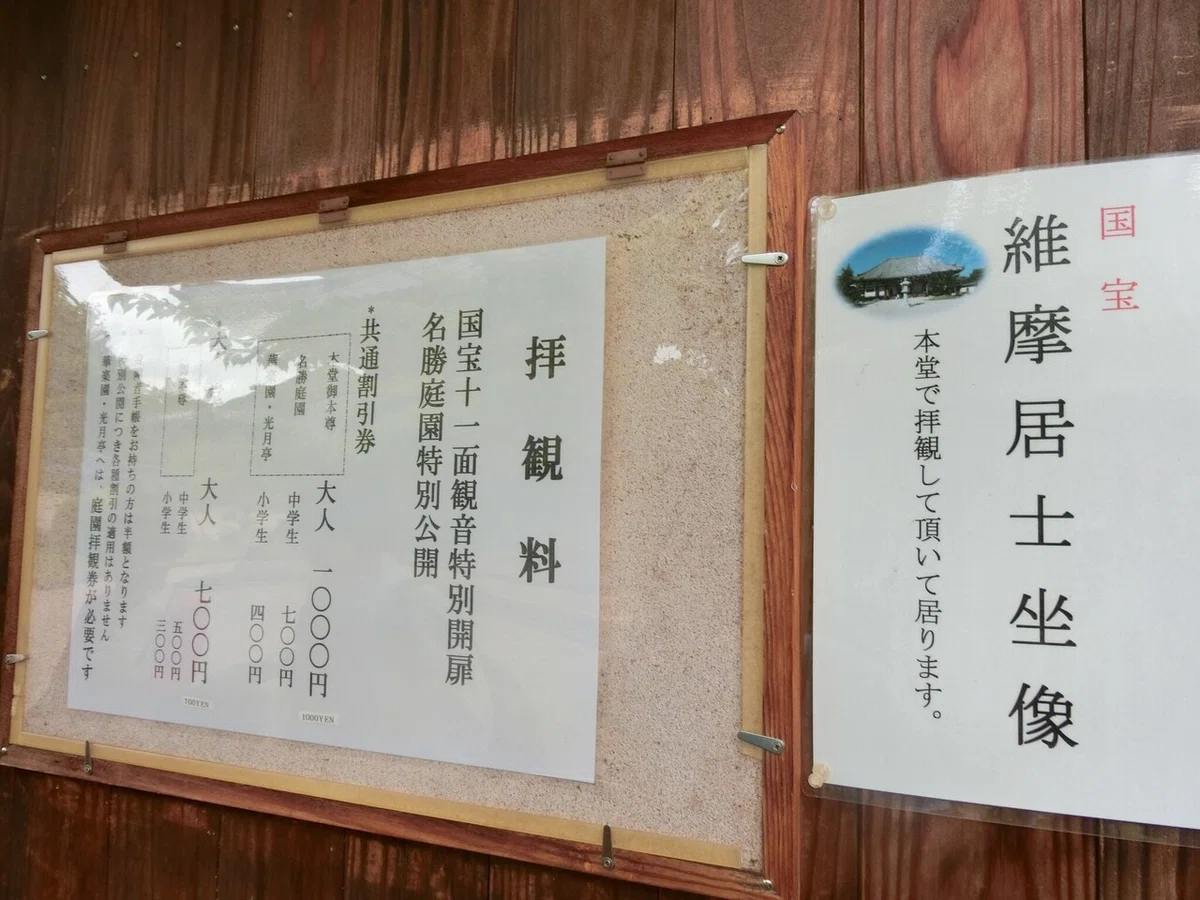 国宝
維摩居士坐像
本堂で拝観して頂いて居ります。
拝観料
国宝十一面観音特別開扉
名勝庭園特別公開
*共通割引券
本堂御本尊
名勝庭園
華楽園・光月亭
大人 一〇〇〇円
1000YEN
中学生 七〇〇円
小学生 四〇〇円
大人 七〇〇円
700YEN
中学生 五〇〇円
小学生 三〇〇円
手帳をお持ちの方は半額となります
別公開につき各種割引の適用はありません
華楽園・光月亭へは、庭園拝観券が必要です